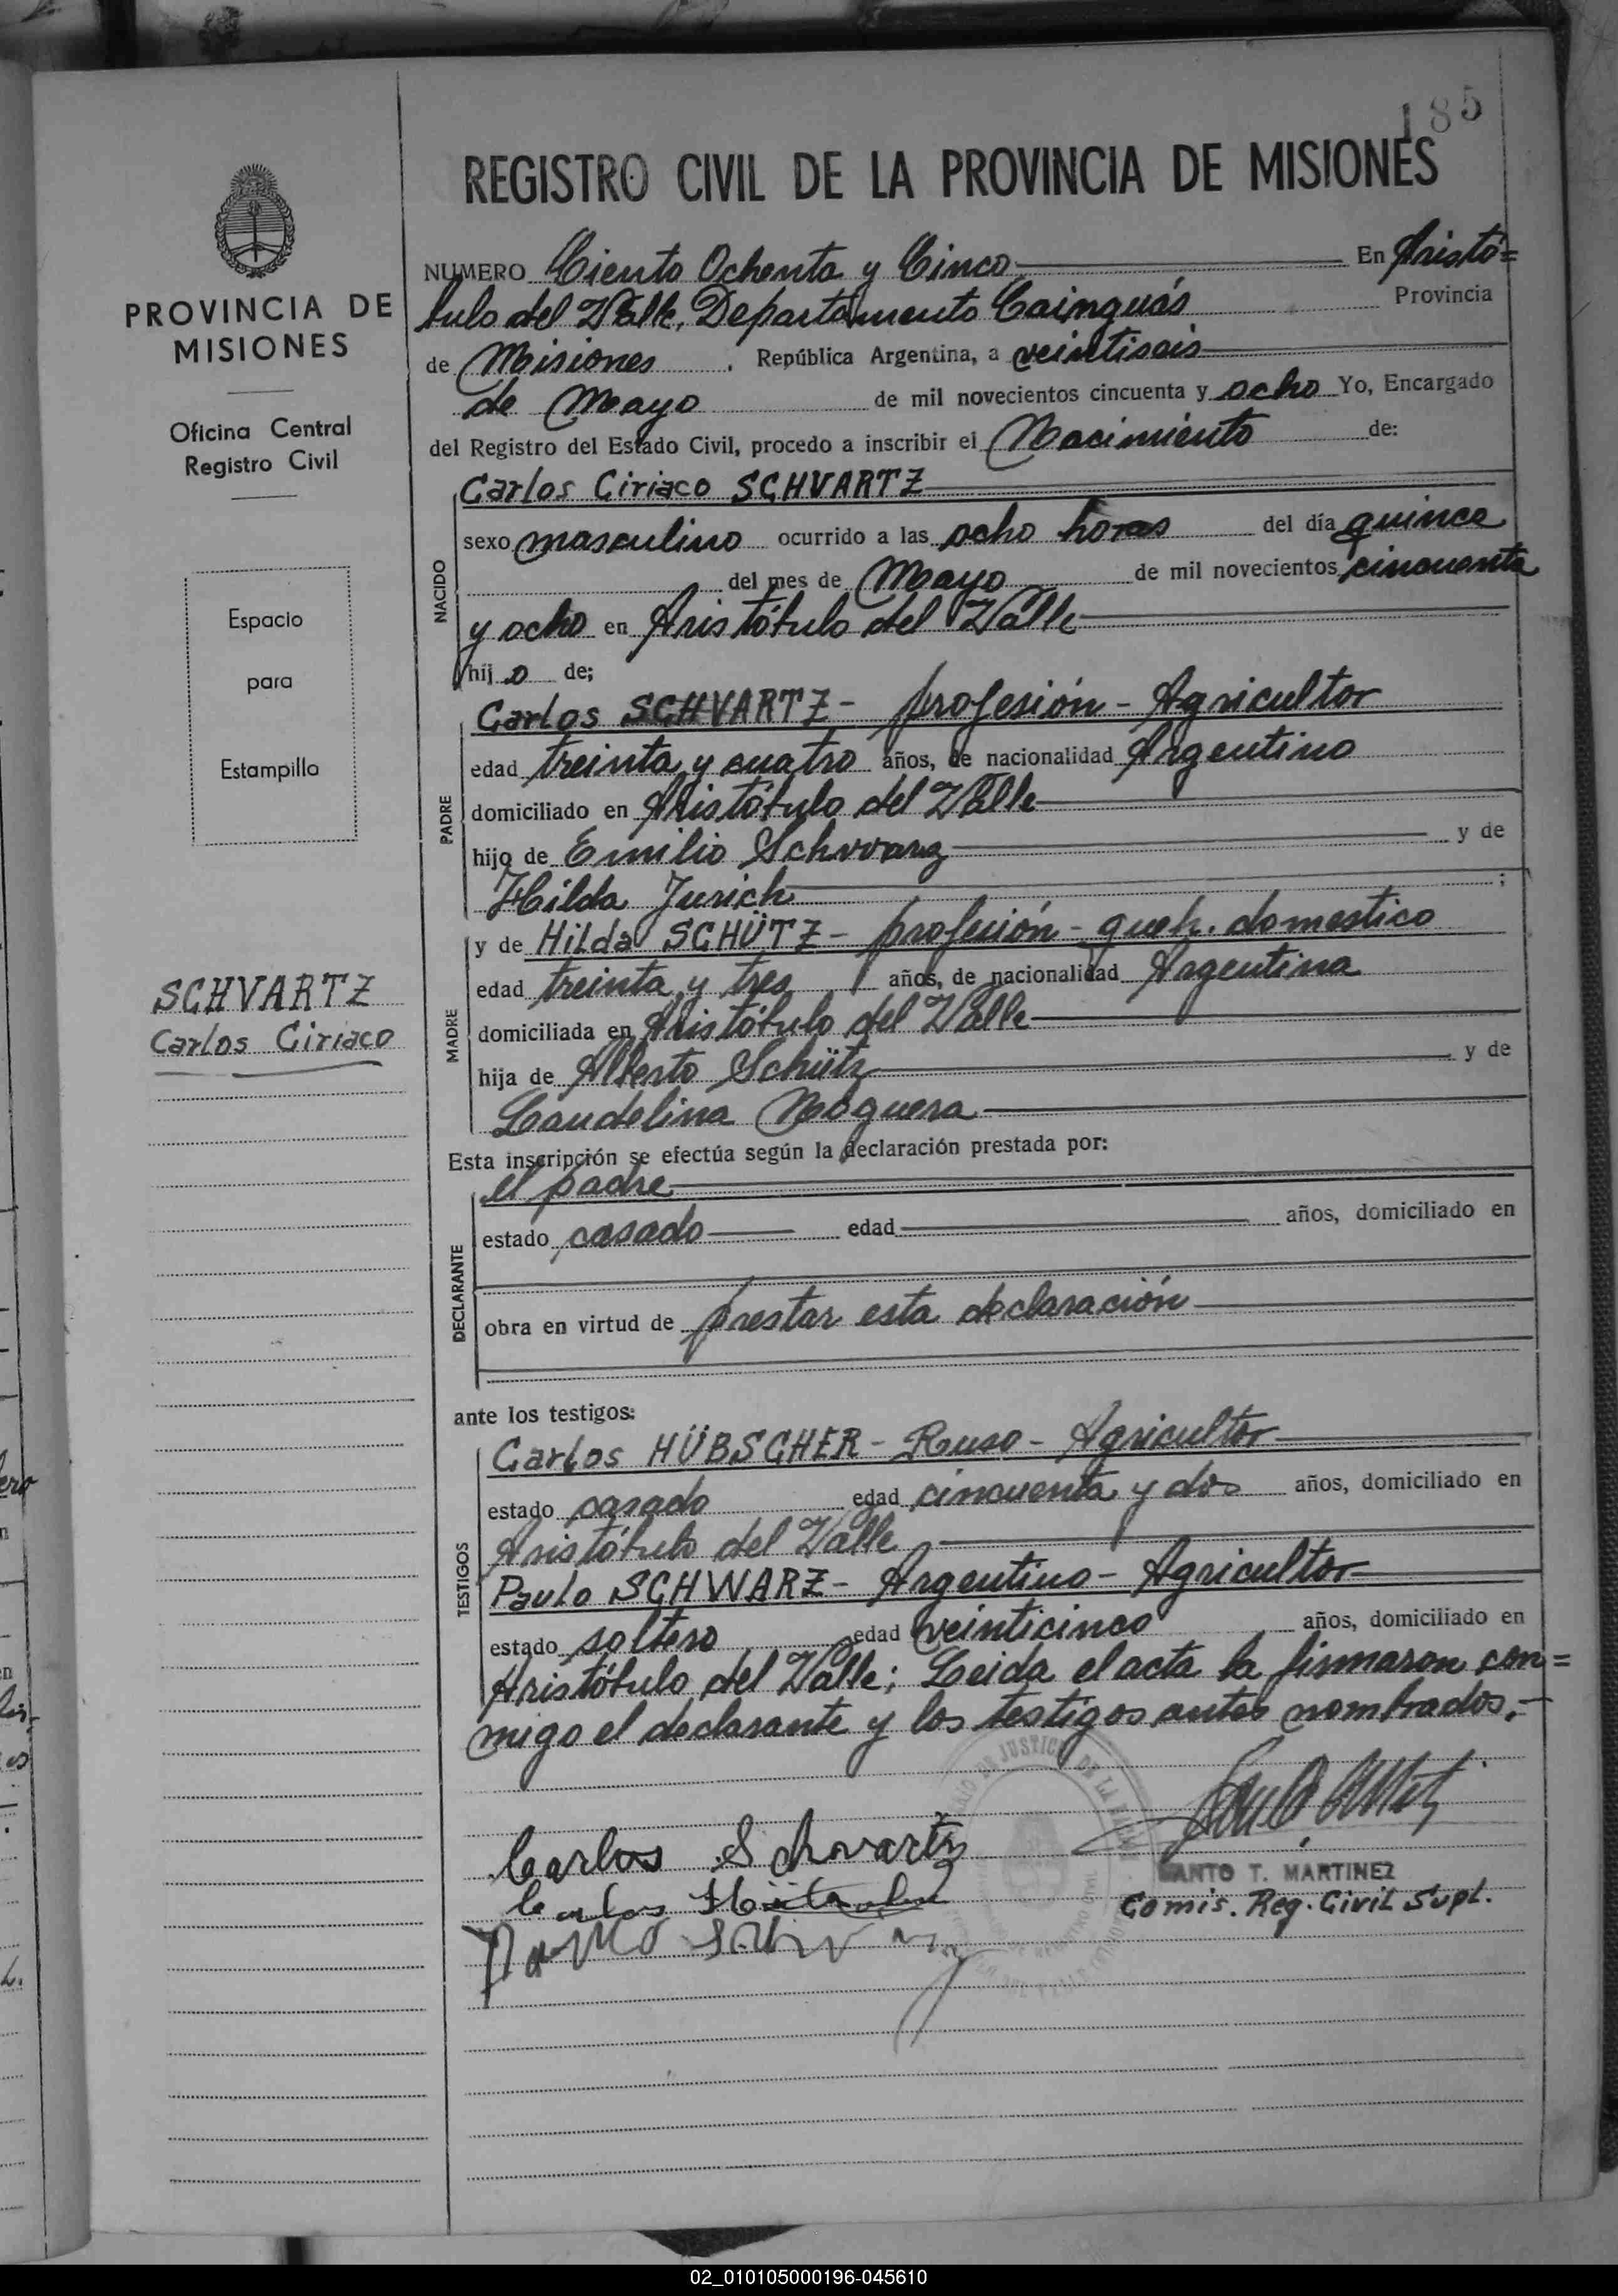 185
REGISTRO CIVIL DE LA PROVINCIA DE MISIONES
PROVINCIA DE
MISIONES
Oficina Central
Registro Civil
Espacio
para
Estampilla
SCHVARTZ
Carlos Ciriaco
NUMERO Ciento Ochenta y Cinco En Aristó=
bulo del Valle, Departamento Cainguás Provincia
de Misiones. República Argentina, a veintiseis
de Mayo de mil novecientos cincuenta y ocho Yo, Encargado
del Registro del Estado Civil, procedo a inscribir el Nacimiento de:
NACIDO
Carlos Ciriaco SCHVARTZ
sexo masculino ocurrido a las ocho horas del día quince
del mes de Mayo de mil novecientos cincuenta
y ocho en Aristóbulo del Valle
hijo de;
PADRE
Carlos SCHVARTZ - profesión - Agricultor
edad treinta y cuatro años, de nacionalidad Argentino
domiciliado en Aristóbulo del Valle
hijo de Emilio Schwarz y de
Hilda Jurich ;
MADRE
y de Hilda SCHÜTZ - profesión - queh. domestico
edad treinta y tres años, de nacionalidad Argentina
domiciliada en Aristóbulo del Valle
hija de Alberto Schütz y de
Candelina Noguera
Esta inscripción se efectúa según la declaración prestada por:
DECLARANTE
el padre
estado casado edad años, domiciliado en
obra en virtud de prestar esta declaración
ante los testigos:
TESTIGOS
Carlos HÜBSCHER - Ruso - Agricultor
estado casado edad cincuenta y dos años, domiciliado en
Aristóbulo del Valle
Paulo SCHWARZ - Argentino - Agricultor
estado soltero edad veinticinco años, domiciliado en
Aristóbulo del Valle; Leida el acta la firmaron con=
migo el declarante y los testigos antes nombrados.-
Carlos Schvartz
Carlos
SANTO T. MARTINEZ
Comis. Reg. Civil Supl.
02_010105000196-045610